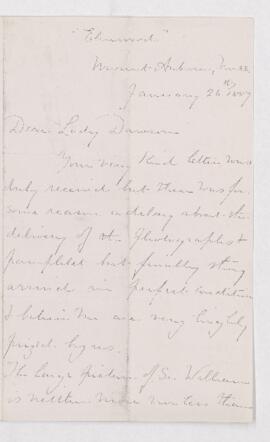 "Elmwood"
Mount Auburn, Mass.
January 26th 1887
Dear Lady Dawson
Your very kind letter was
duly received but there was for
some reason a delay about the
delivery of the Photographs &
pamphlet but finally they
arrived in perfect condition
& believe me are very highly
prized by us.
The large picture of Sir William
is neither more nor less than